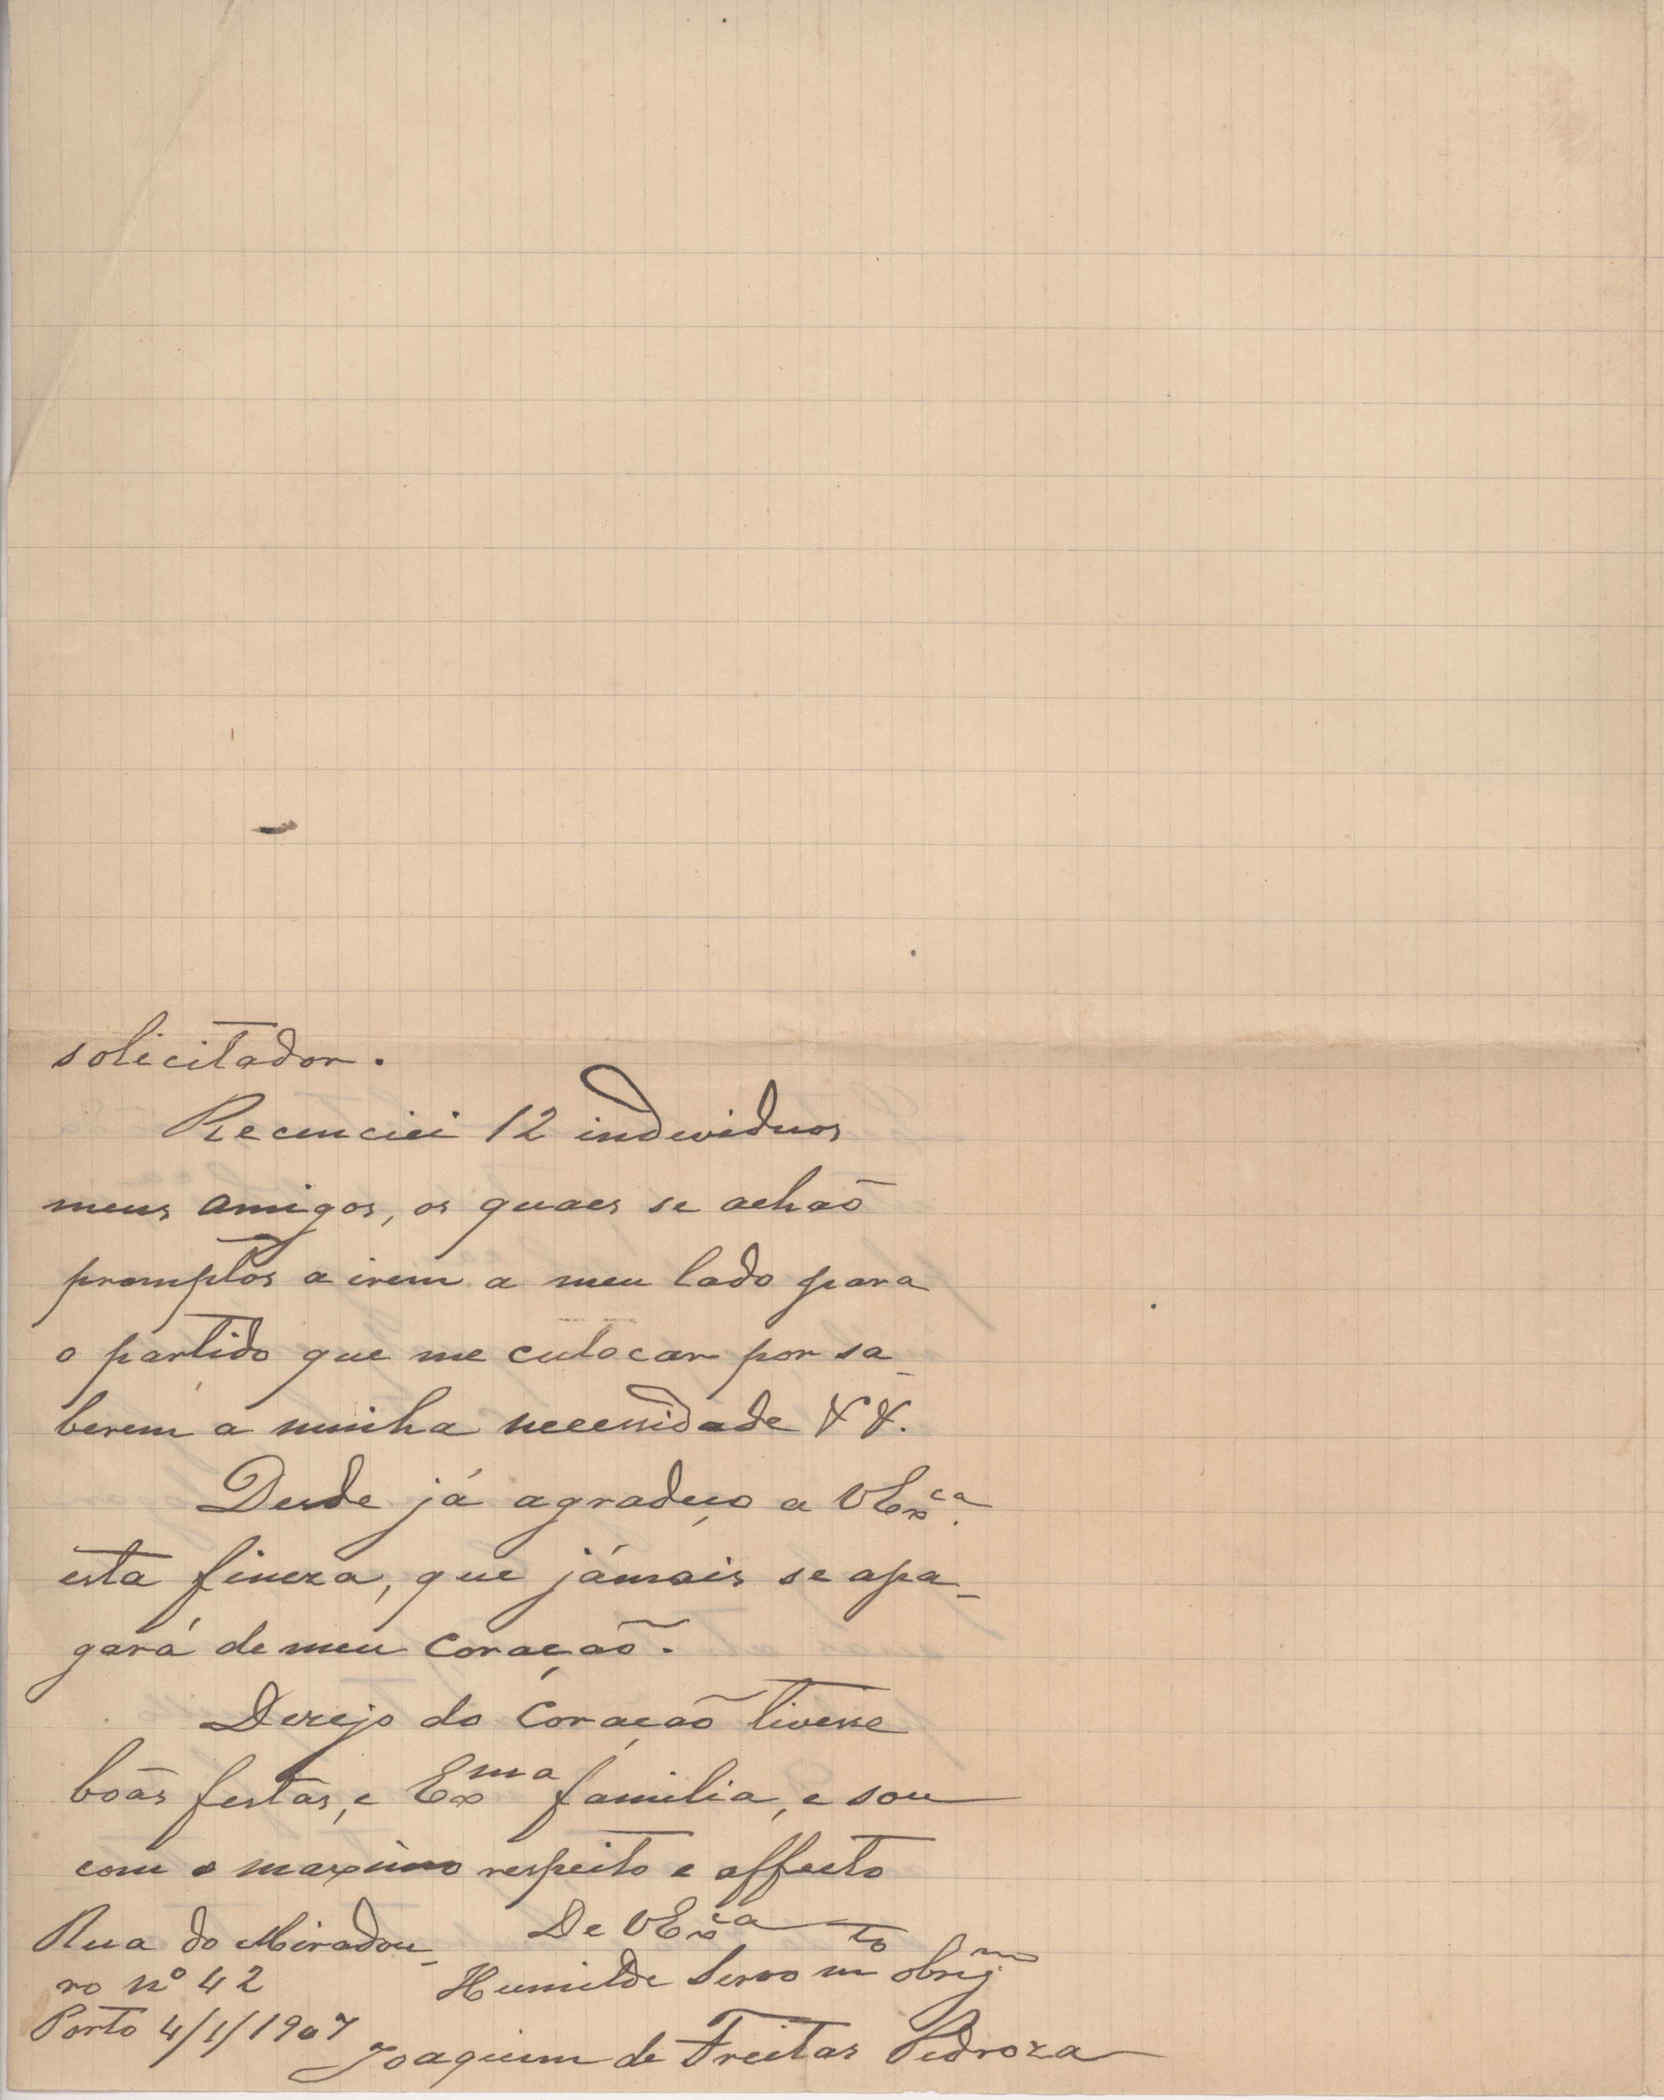 solicitador.
Recenciei 12 individuos
meus amigos, os quaes se achaõ
promptos a irem a meu lado para
o partido que me culocar por sa-
berem a minha necessidade & &.
Desde já agradeço a VEx.ca
esta fineza, que jámais se apa-
gará de meu coraçaõ.
Dezejo do Coraçaõ tivesse
boãs festas, e Exma familia, e sou
com o maximo respeito e affecto
De VExca
Rua do Miradou-
ro nº 42
Humilde Servo mto obrigmo
Porto 4/1/1907
Joaquim de Freitas Pedroza